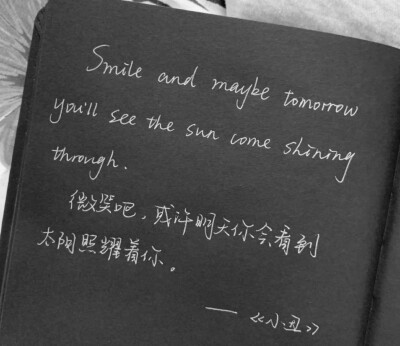 Smile and maybe tomorrow
you'll see the sun come shining
through.
微笑吧，或许明天你会看到
太阳照耀着你。
——《小丑》